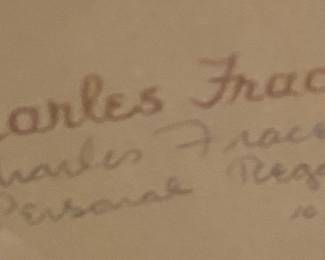 arles Frac
harles Frace
Personal Rega